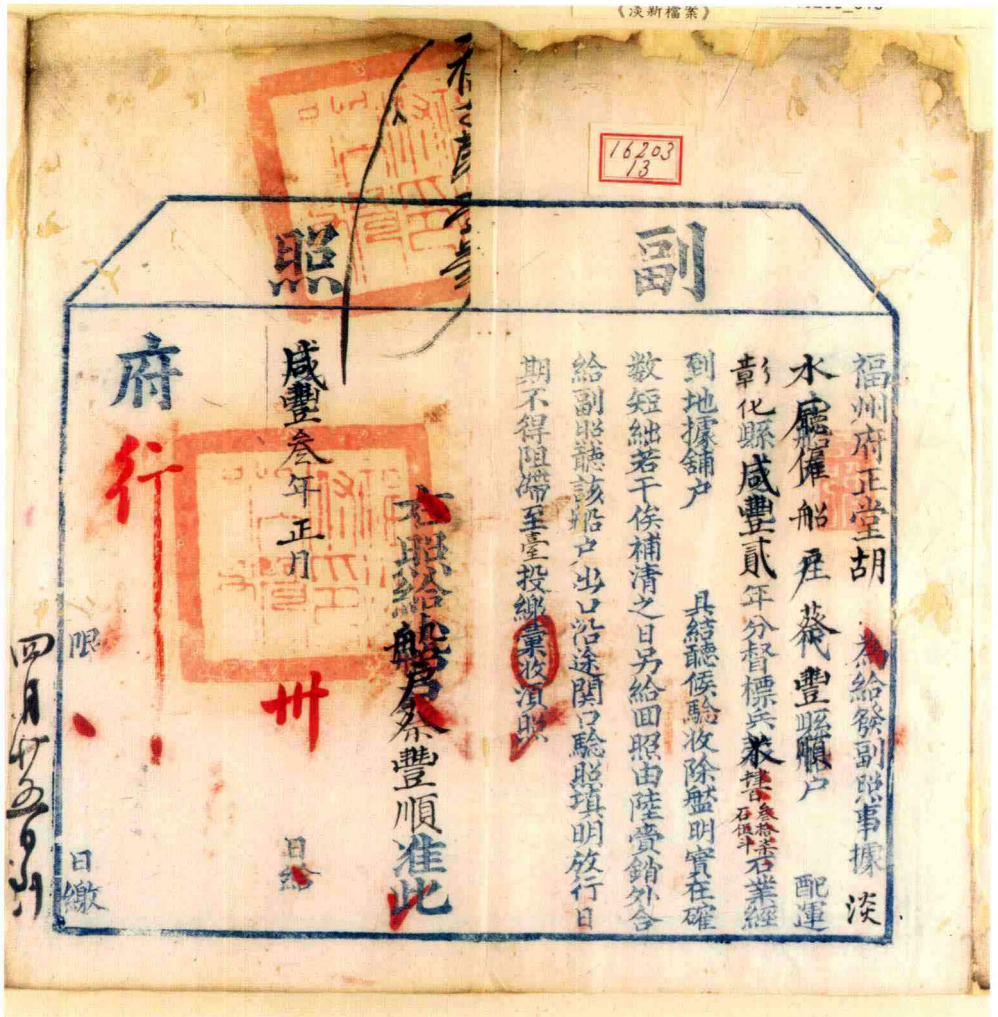 《淡新檔案》
16203
13
副照
福州府正堂胡 為給發副照事據淡
水廳僱船産蔡豐縣順戶 配運
彰化縣咸豐貳年分督標兵米肆百參拾柒石伍斗石業經
到地據舖户 具結聽候驗收除盤明實在確
數短絀若干俟補清之日另給回照由陸賫銷外合
給副照聽該船户出口沿途関口驗照填明放行日
期不得阻滯至臺投繳彙收湏照
右照給船户蔡豐順准此
咸豐叁年正月 卅 日給
府行
限 日繳
四月廿五日